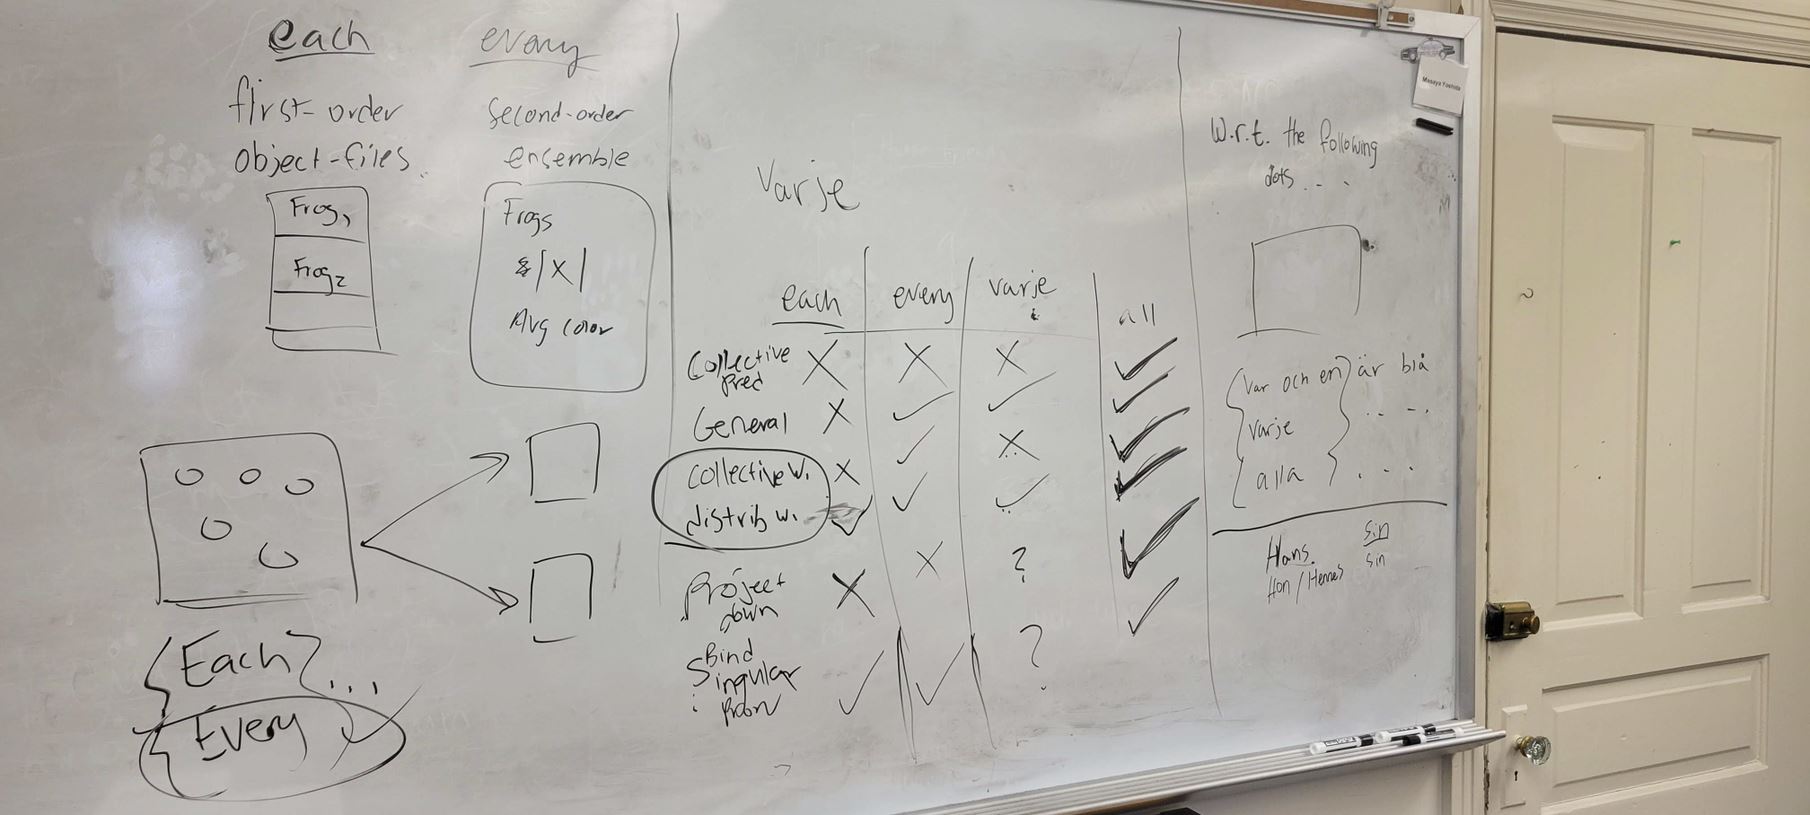 each
first-order
object-files
Frog1
Frog2
every
second-order
ensemble
Frogs
|X|
Avg color
{Each} ...
{Every ✓
Varje
each every varje all
Collective pred X X X ✓
General X ✓ ✓ ✓
Collective w. X ✓ X ✓
distrib w. ✓ ✓ ✓ ✓
Project down X X ? ✓
Bind Singular pron ✓ ✓ ? ✓
W.r.t. the following
dots...
{Var och en} är blå
varje ....
alla ....
Hans sin
Hon / Hennes sin
Masaya Yoshida